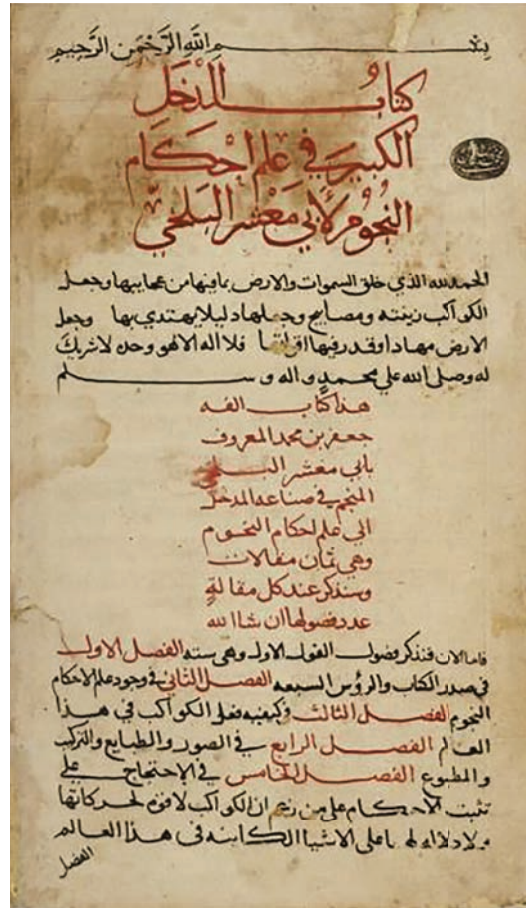 بسم الله الرحمن الرحيم
كتاب المدخل
الكبير في علم احكام
النجوم لأبي معشر البلخي
الحمد لله الذي خلق السموات والارض بما فيها من عجايبها وجعل
الكواكب زينة ومصابيح وجعلها دليلا يهتدي بها وجعل
الارض مهادا وقدر فيها اقواتها فلا اله الا هو وحده لا شريك
له وصلى الله على محمد واله وسلم
هذا كتاب الفه
جعفر بن محمد المعروف
بابي معشر البلخي
المنجم في صناعة المدخل
الي علم احكام النجوم
وهي ثمان مقالات
وسنذكر عند كل مقالة
عدد فصولها ان شا الله
فاما الان فنذكر فصول القول الاول وهي سته الفصل الاول
في صدر الكتاب والرؤس السبعه الفصل الثاني في وجود علم الاحكام
النجوم الفصل الثالث في كيفية فعل الكواكب في هذا
العالم الفصل الرابع في الصور والطبايع والتركيب
والمطبوع الفصل الخامس في الاحتجاج علي
تثبت الاحكام على من زعم ان الكواكب لا قوة لحركاتها
ولا دلالة لها على الاشيا الكاينه في هذا العالم
الفصل